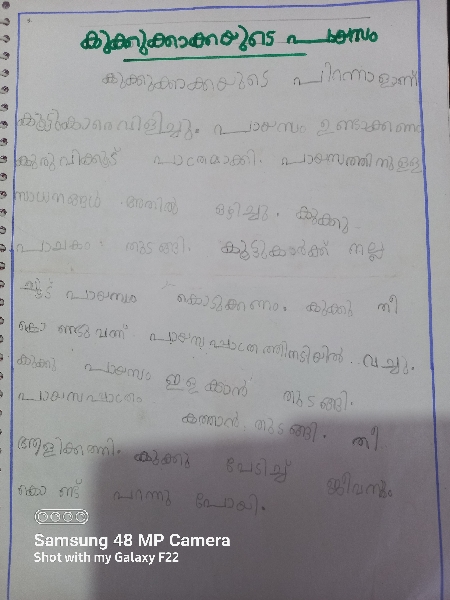 കുക്കുക്കാക്കയുടെ പായസം
കുക്കുക്കാക്കയുടെ പിറന്നാളാണ്
കൂട്ടുകാരെ വിളിച്ചു. പായസം ഉണ്ടാക്കണം
കുരുവിക്കൂട് പാത്രമാക്കി. പായസത്തിനുള്ള
സാധനങ്ങൾ അതിൽ ഒഴിച്ചു. കുക്കു
പാചകം തുടങ്ങി. കൂട്ടുകാർക്ക് നല്ല
ചൂട് പായസം കൊടുക്കണം. കുക്കു തീ
കൊണ്ടുവന്ന് പായസപാത്രത്തിനടിയിൽ വച്ചു.
കുക്കു പായസം ഇളക്കാൻ തുടങ്ങി.
പായസപാത്രം കത്താൻ തുടങ്ങി. തീ
ആളിക്കത്തി. കുക്കു പേടിച്ച് ജീവനും
കൊണ്ട് പറന്നു പോയി.
Samsung 48 MP Camera
Shot with my Galaxy F22